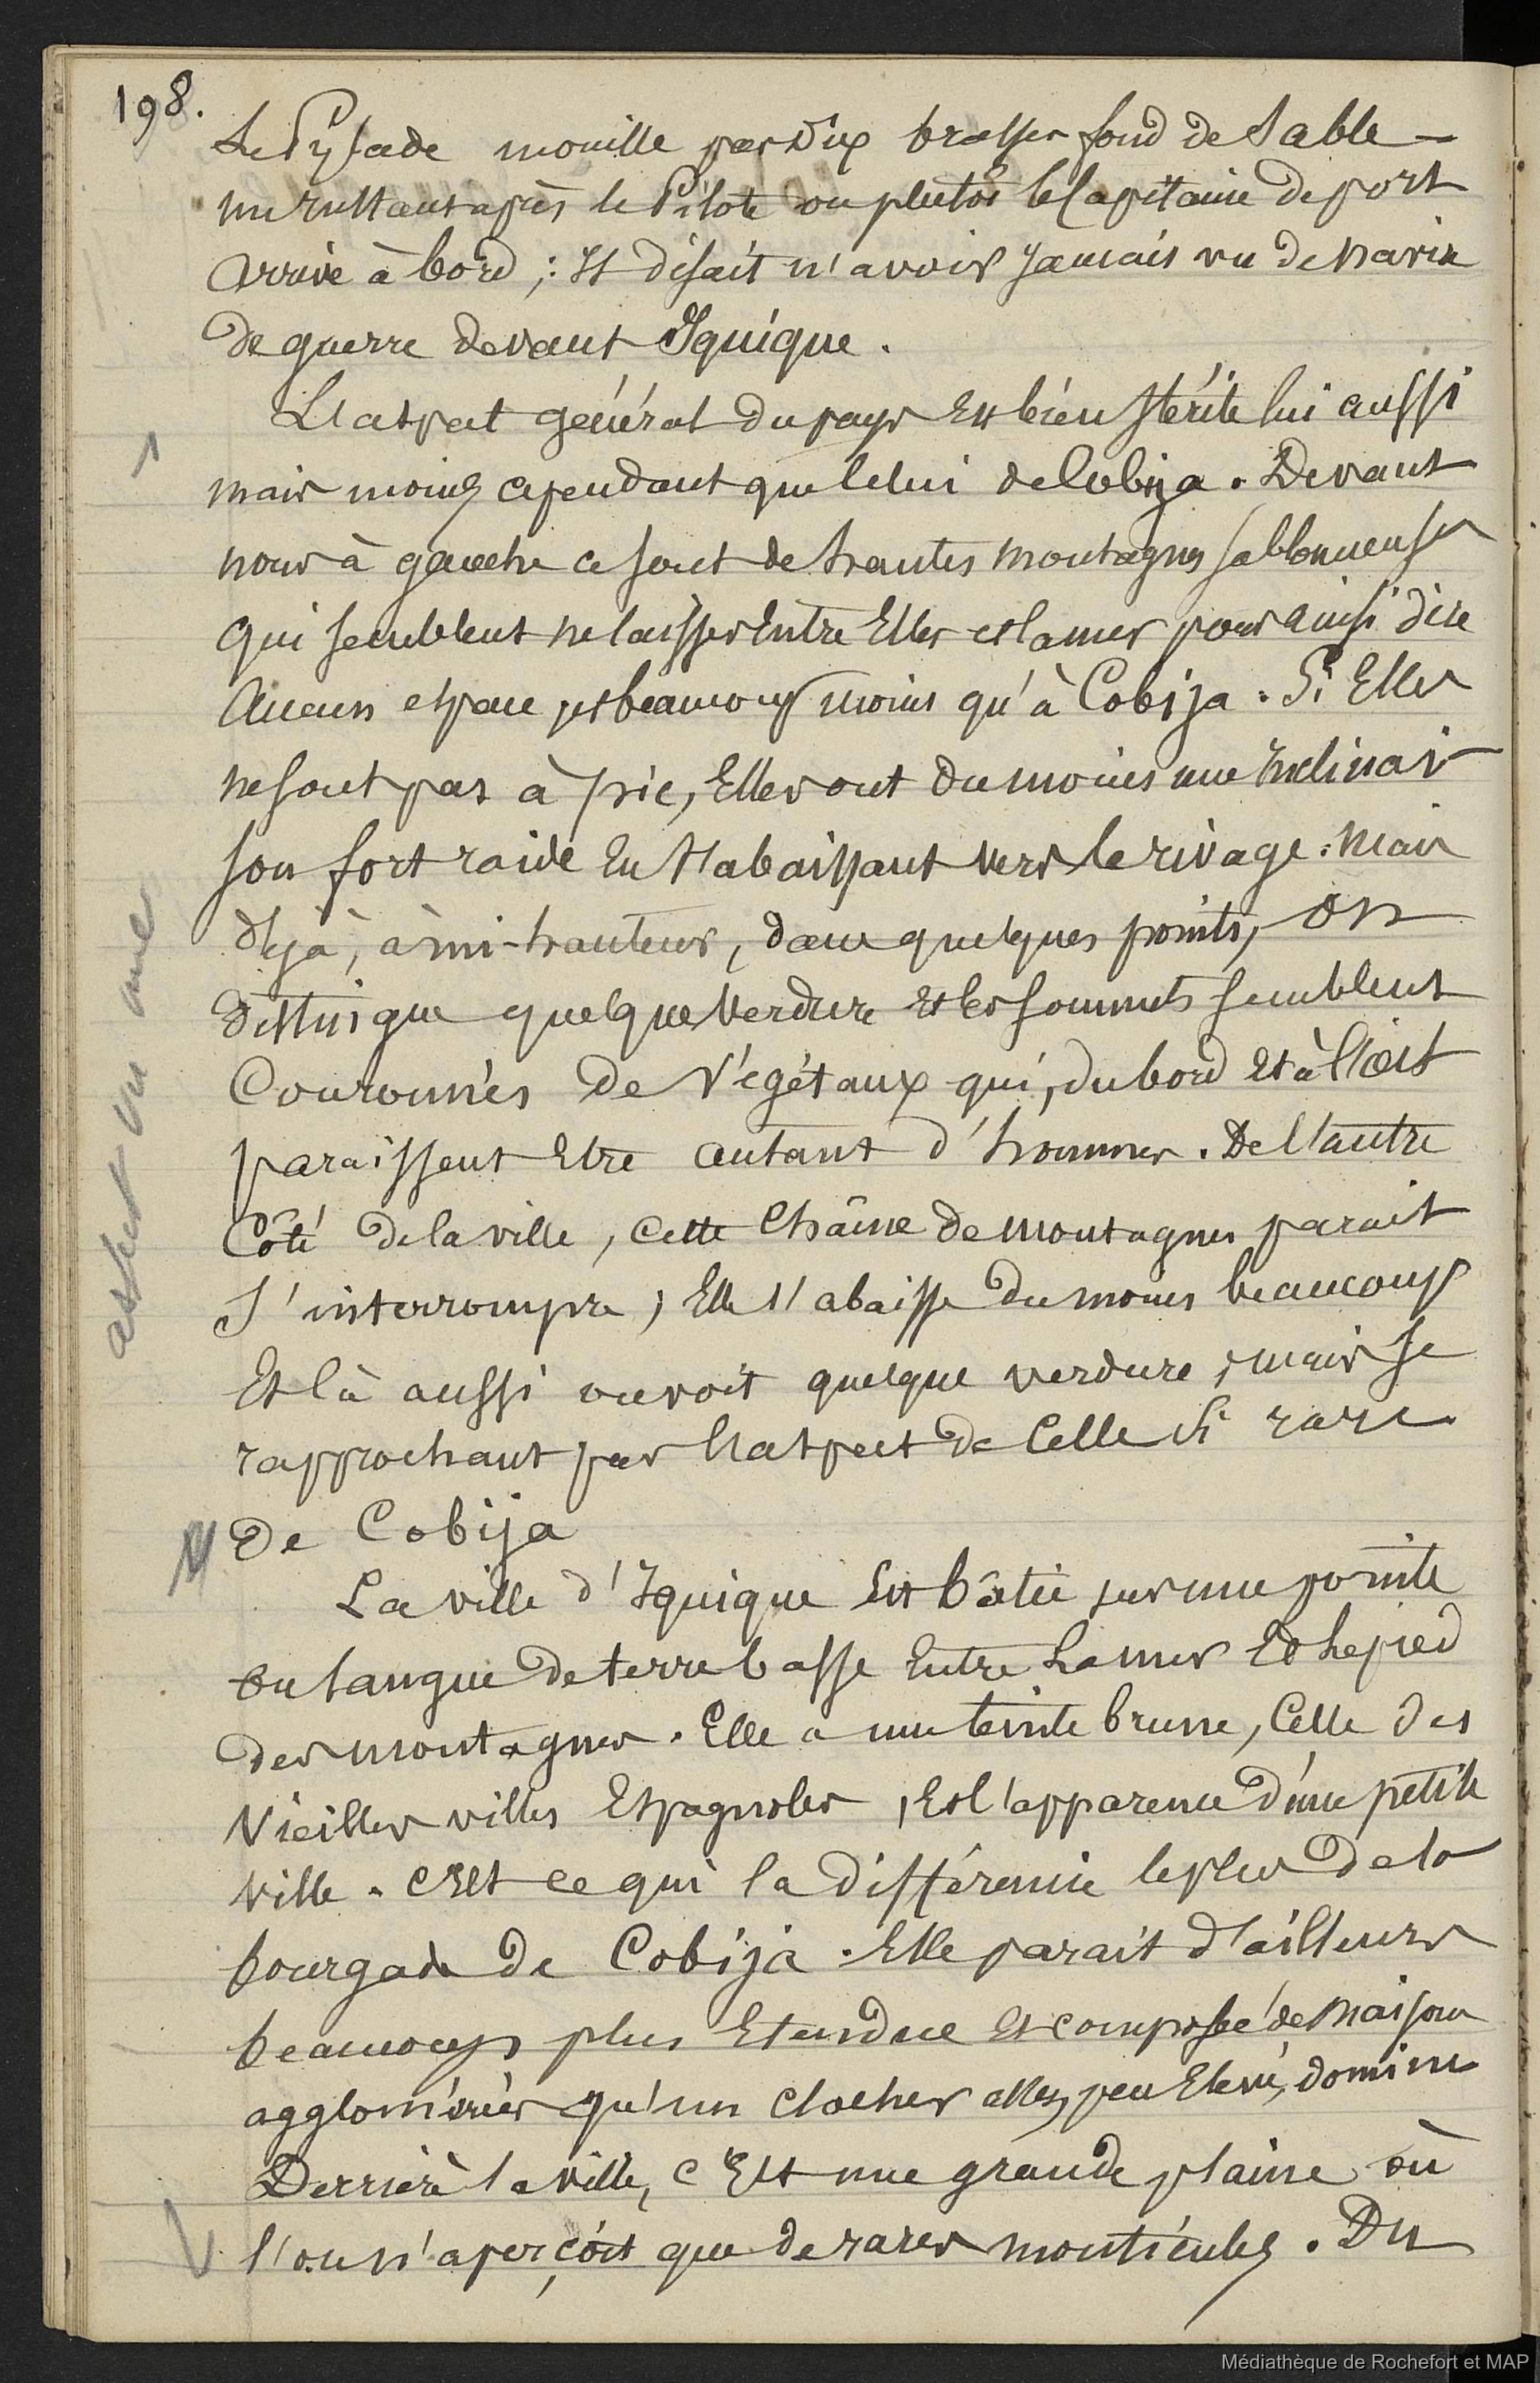 198.
Le Pylade mouille par dix brasses fond de sable —
un instant après le Pilote ou plutôt le Capitaine de port
arrive à bord ; Il disait n'avoir jamais vu de navire
de guerre devant Iquique.
L'aspect général du pays est bien stérile lui aussi
mais moins cependant que celui de Cobija. Devant
nous à gauche ce sont de hautes montagnes sablonneuses
qui semblent ne laisser entre Elles et la mer pour ainsi dire
aucun espace, et beaucoup moins qu'à Cobija. Si Elles
ne sont pas à pic, Elles ont du moins une inclinai-
son fort raide en s'abaissant vers le rivage : Mais
déjà, à mi-hauteur, dans quelques points, on
distingue quelque verdure et les sommets semblent
Couronnés de Végétaux qui, du bord et à l'œil
paraissent Etre autant d'hommes. De l'autre
Côté de la ville, cette Chaîne de montagnes parait
s'interrompre ; Elle s'abaisse du moins beaucoup
Et là aussi on voit quelque verdure, mais se
rapprochant par l'aspect de Celle si rare
De Cobija
La ville d'Iquique Est bâtie sur une pointe
ou langue de terre basse Entre La mer Et le pied
des montagnes. Elle a une teinte brune, Celle des
Vieilles villes Espagnoles, Et l'apparence d'une petite
ville. C'Est ce qui la différencie le plus de la
bourgade de Cobija. Elle parait d'ailleurs
beaucoup plus Etendue Et composée de Maisons
agglomérées qu'un clocher assez peu Elevé, domine
Derrière la ville, c'Est une grande plaine où
l'on n'aperçoit que de rares monticules. Du
aspect vu une
Médiathèque de Rochefort et MAP